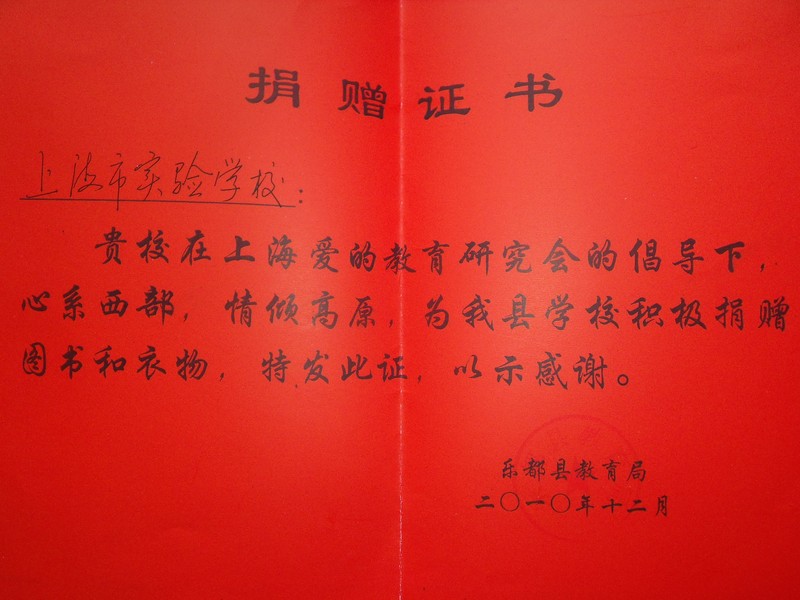 捐赠证书
上海市实验学校：
贵校在上海爱的教育研究会的倡导下，
心系西部，情倾高原，为我县学校积极捐赠
图书和衣物，特发此证，以示感谢。
乐都县教育局
二〇一〇年十二月